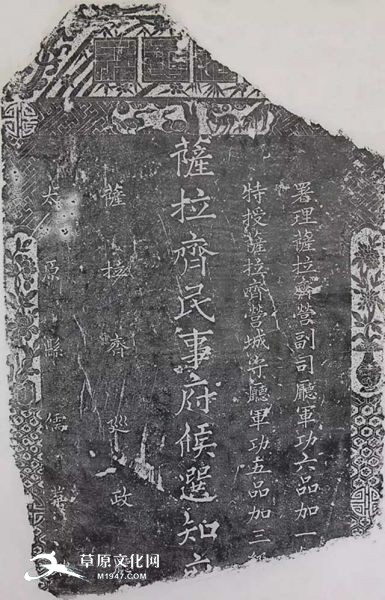 署理薩拉齊營副司廳軍功六品加一
特授薩拉齊營城守廳軍功五品加三
薩拉齊民事府候選知
薩拉齊巡政
太原縣儒
草原文化网
M1947.COM